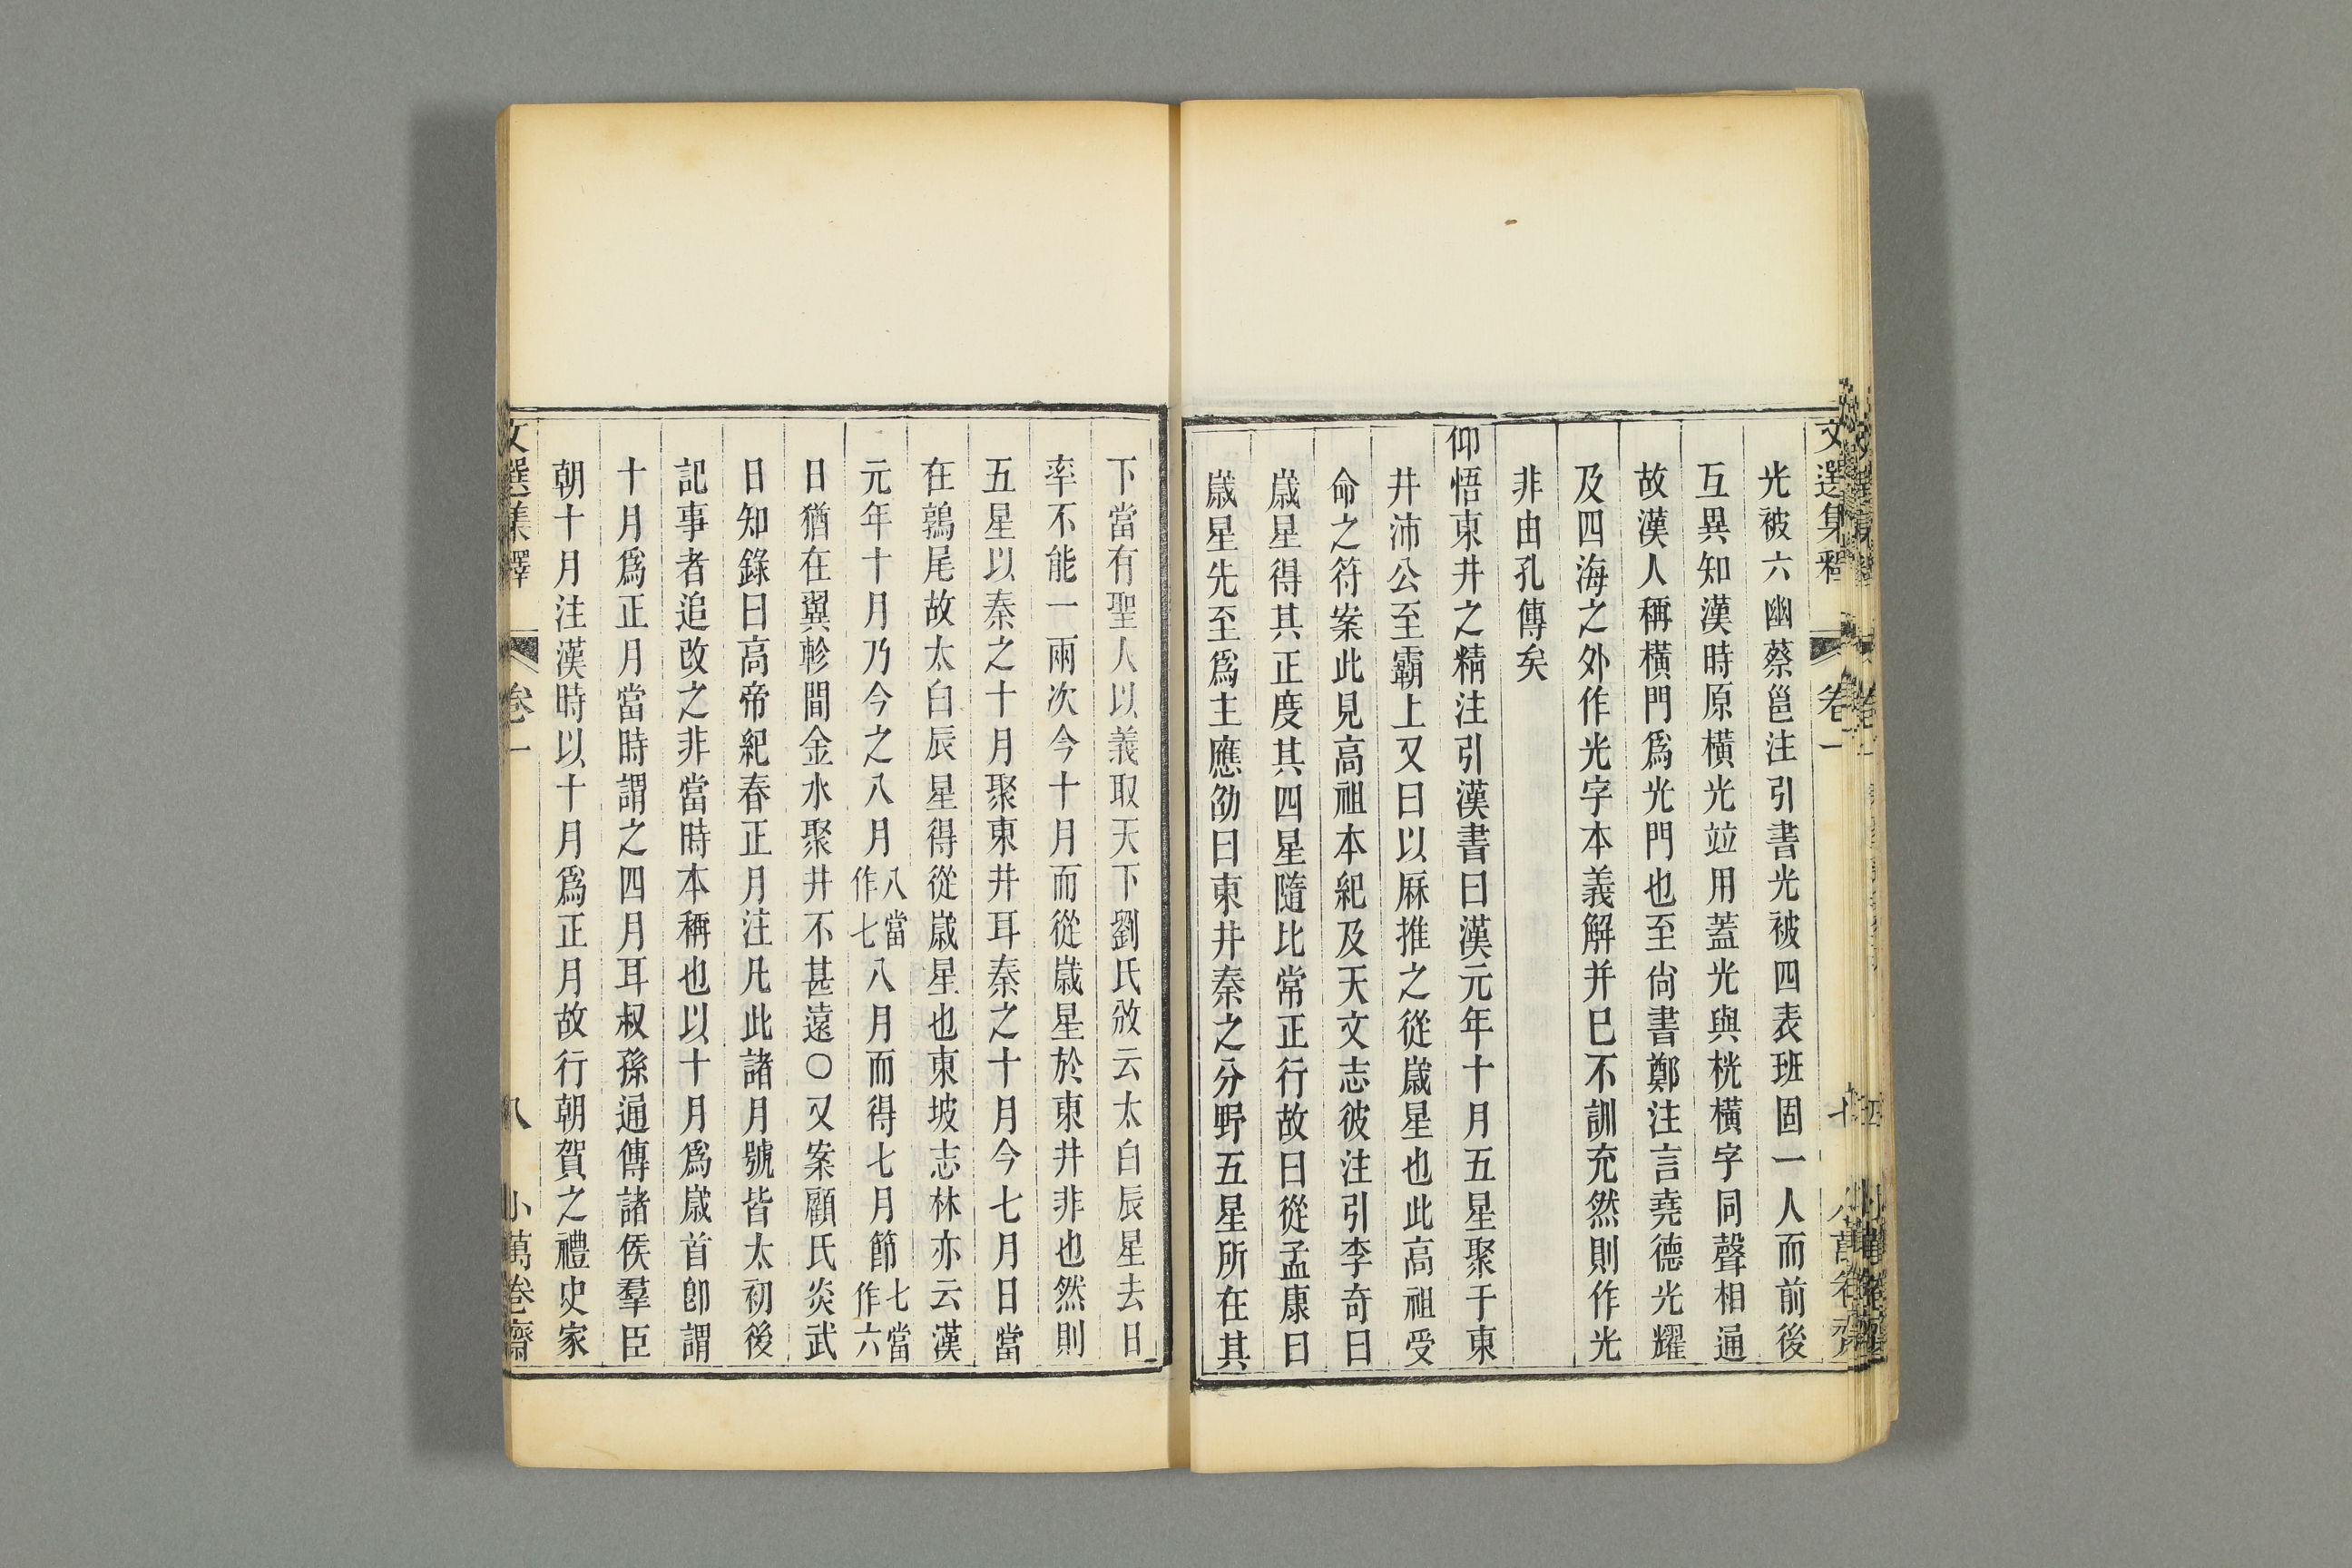 文選集釋 卷一 七 小萬卷齋
光被六幽蔡邕注引書光被四表班固一人而前後
互異知漢時原橫光竝用蓋光與桄橫字同聲相通
故漢人稱橫門爲光門也至尙書鄭注言堯德光耀
及四海之外作光字本義解并巳不訓充然則作光
非由孔傳矣
仰悟東井之精注引漢書曰漢元年十月五星聚于東
井沛公至霸上又曰以厤推之從歲星也此高祖受
命之符案此見高祖本紀及天文志彼注引李奇曰
歲星得其正度其四星隨比常正行故曰從孟康曰
歲星先至爲主應劭曰東井秦之分野五星所在其
下當有聖人以義取天下劉氏攽云太白辰星去日
率不能一兩次今十月而從歲星於東井非也然則
五星以秦之十月聚東井耳秦之十月今七月日當
在鶉尾故太白辰星得從歲星也東坡志林亦云漢
元年十月乃今之八月八當作七八月而得七月節七當作六
日猶在翼軫間金水聚井不甚遠○又案顧氏炎武
日知錄曰高帝紀春正月注凡此諸月號皆太初後
記事者追改之非當時本稱也以十月爲歲首卽謂
十月爲正月當時謂之四月耳叔孫通傳諸侯羣臣
朝十月注漢時以十月爲正月故行朝賀之禮史家
文選集釋 卷一 八 小萬卷齋